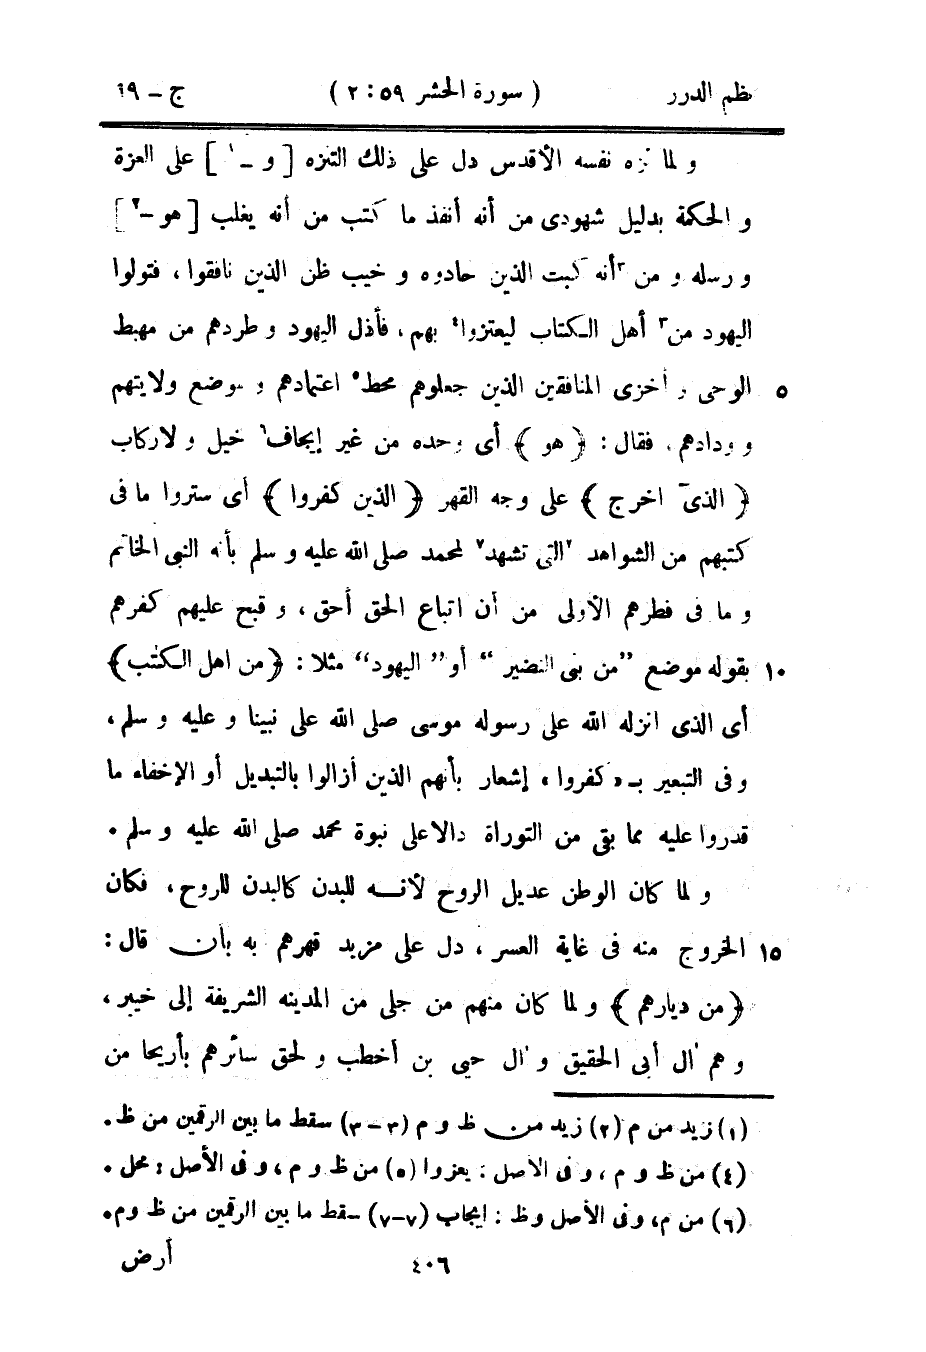 نظم الدرر ( سورة الحشر ٥٩ : ٢ ) ج – ١٩
و لما نزه نفسه الأقدس دل على ذلك التنزه [ و – ١ ] على العزة
و الحكمة بدليل شهودى من أنه أنفذ ما كتب من أنه يغلب [ هو – ٢ ]
و رسله و من ٣أنه كبت الذين حادوه و خيب ظن الذين نافقوا ، فتولوا
اليهود من٣ أهل الكتاب ليعتزوا٤ بهم ، فأذل اليهود و طردهم من مهبط
٥ الوحى و أخزى المنافقين الذين جعلوهم محط٥ اعتمادهم و موضع ولايتهم
و ودادهم ، فقال : ﴿ هو ﴾ أى وحده من غير إيجاف٦ خيل و لا ركاب
﴿ الذىٓ اخرج ﴾ على وجه القهر ﴿ الذين كفروا ﴾ أى ستروا ما فى
كتبهم من الشواهد ٧التى تشهد٧ لمحمد صلى الله عليه و سلم بأنه النبى الخاتم
و ما فى فطرهم الأولى من أن اتباع الحق أحق ، و قبح عليهم كفرهم
١٠ بقوله موضع ”من بنى النضير“ أو ”اليهود“ مثلا : ﴿ من اهل الكتٰب ﴾
أى الذى انزله الله على رسوله موسى صلى الله على نبينا و عليه و سلم ،
وفى التعبير بـ « كفروا » إشعار بأنهم الذين أزالوا بالتبديل أو الإخفاء ما
قدروا عليه مما بقى من التوراة دالا على نبوة محمد صلى الله عليه و سلم .
و لما كان الوطن عديل الروح لأنه للبدن كالبدن للروح ، فكان
١٥ الخروج منه فى غاية العسر ، دل على مزيد قهرهم به بأن قال :
﴿ من ديارهم ﴾ و لما كان منهم من جلى من المدينه الشريفة إلى خيبر ،
و هم آل أبى الحقيق و آل حيى بن أخطب و لحق سائرهم بأريحا من
(١) زيد من م (٢) زيد من ظ و م (٣–٣) سقط ما بين الرقمين من ظ .
(٤) من ظ و م ، و فى الأصل : يعزوا (٥) من ظ و م ، و فى الأصل : محل .
(٦) من م، وفى الأصل وظ : ايجاب (٧–٧) سقط ما بين الرقمين من ظ وم.
٤٠٦ أرض